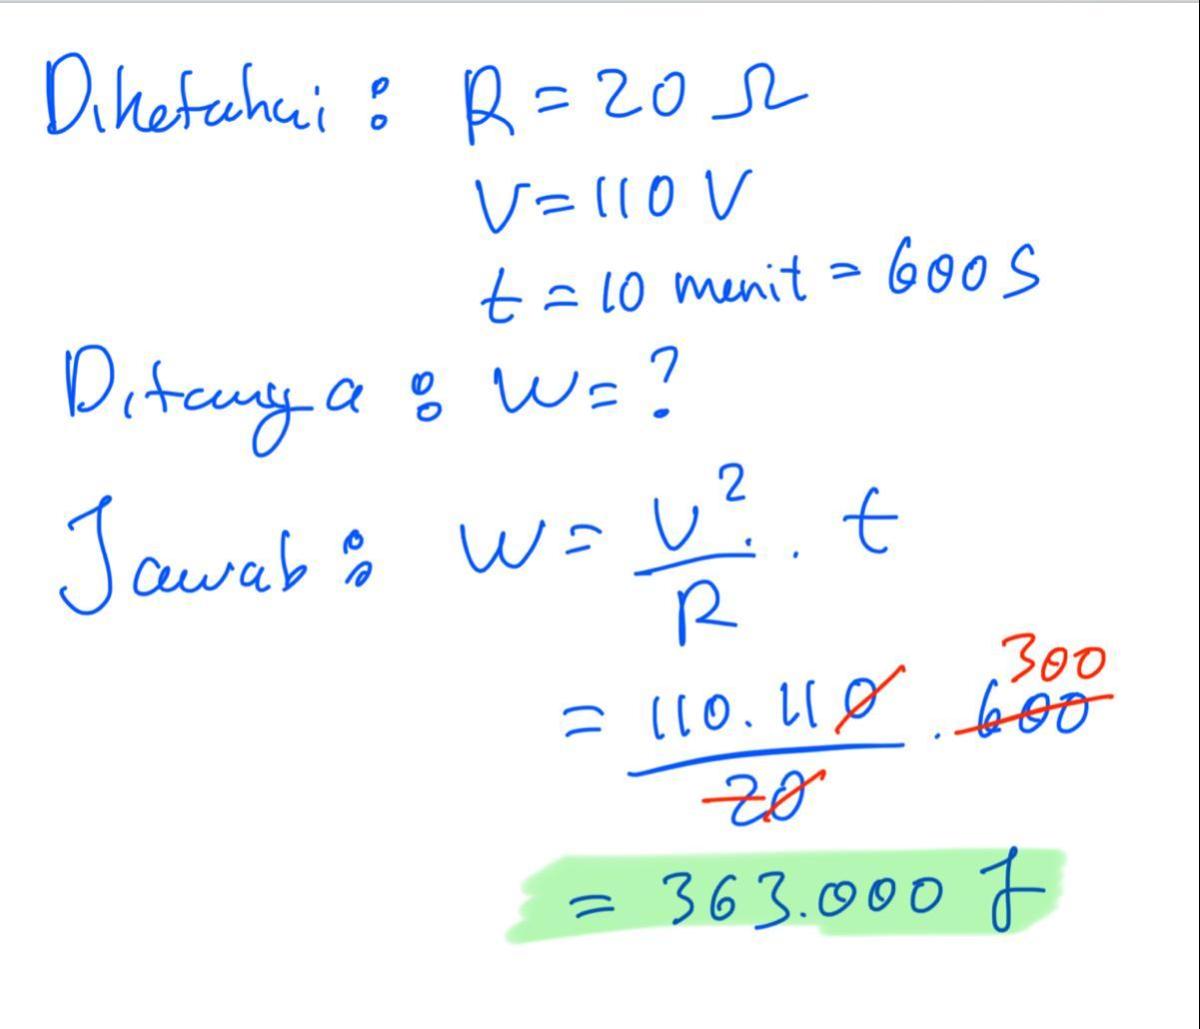 Diketahui : R = 20 Ω
V = 110 V
t = 10 menit = 600 S
Ditanya : W = ?
Jawab : W = V². . t / R
= 110.110 / 20 . 600 300
= 363.000 J